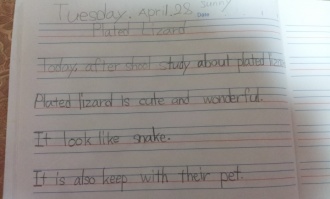 Tuesday. April. 28 Sunny
Date
Plated Lizard
Today, after shool study about plated lizard
Plated lizard is cute and wonderful.
It look like snake.
It is also keep with their pet.